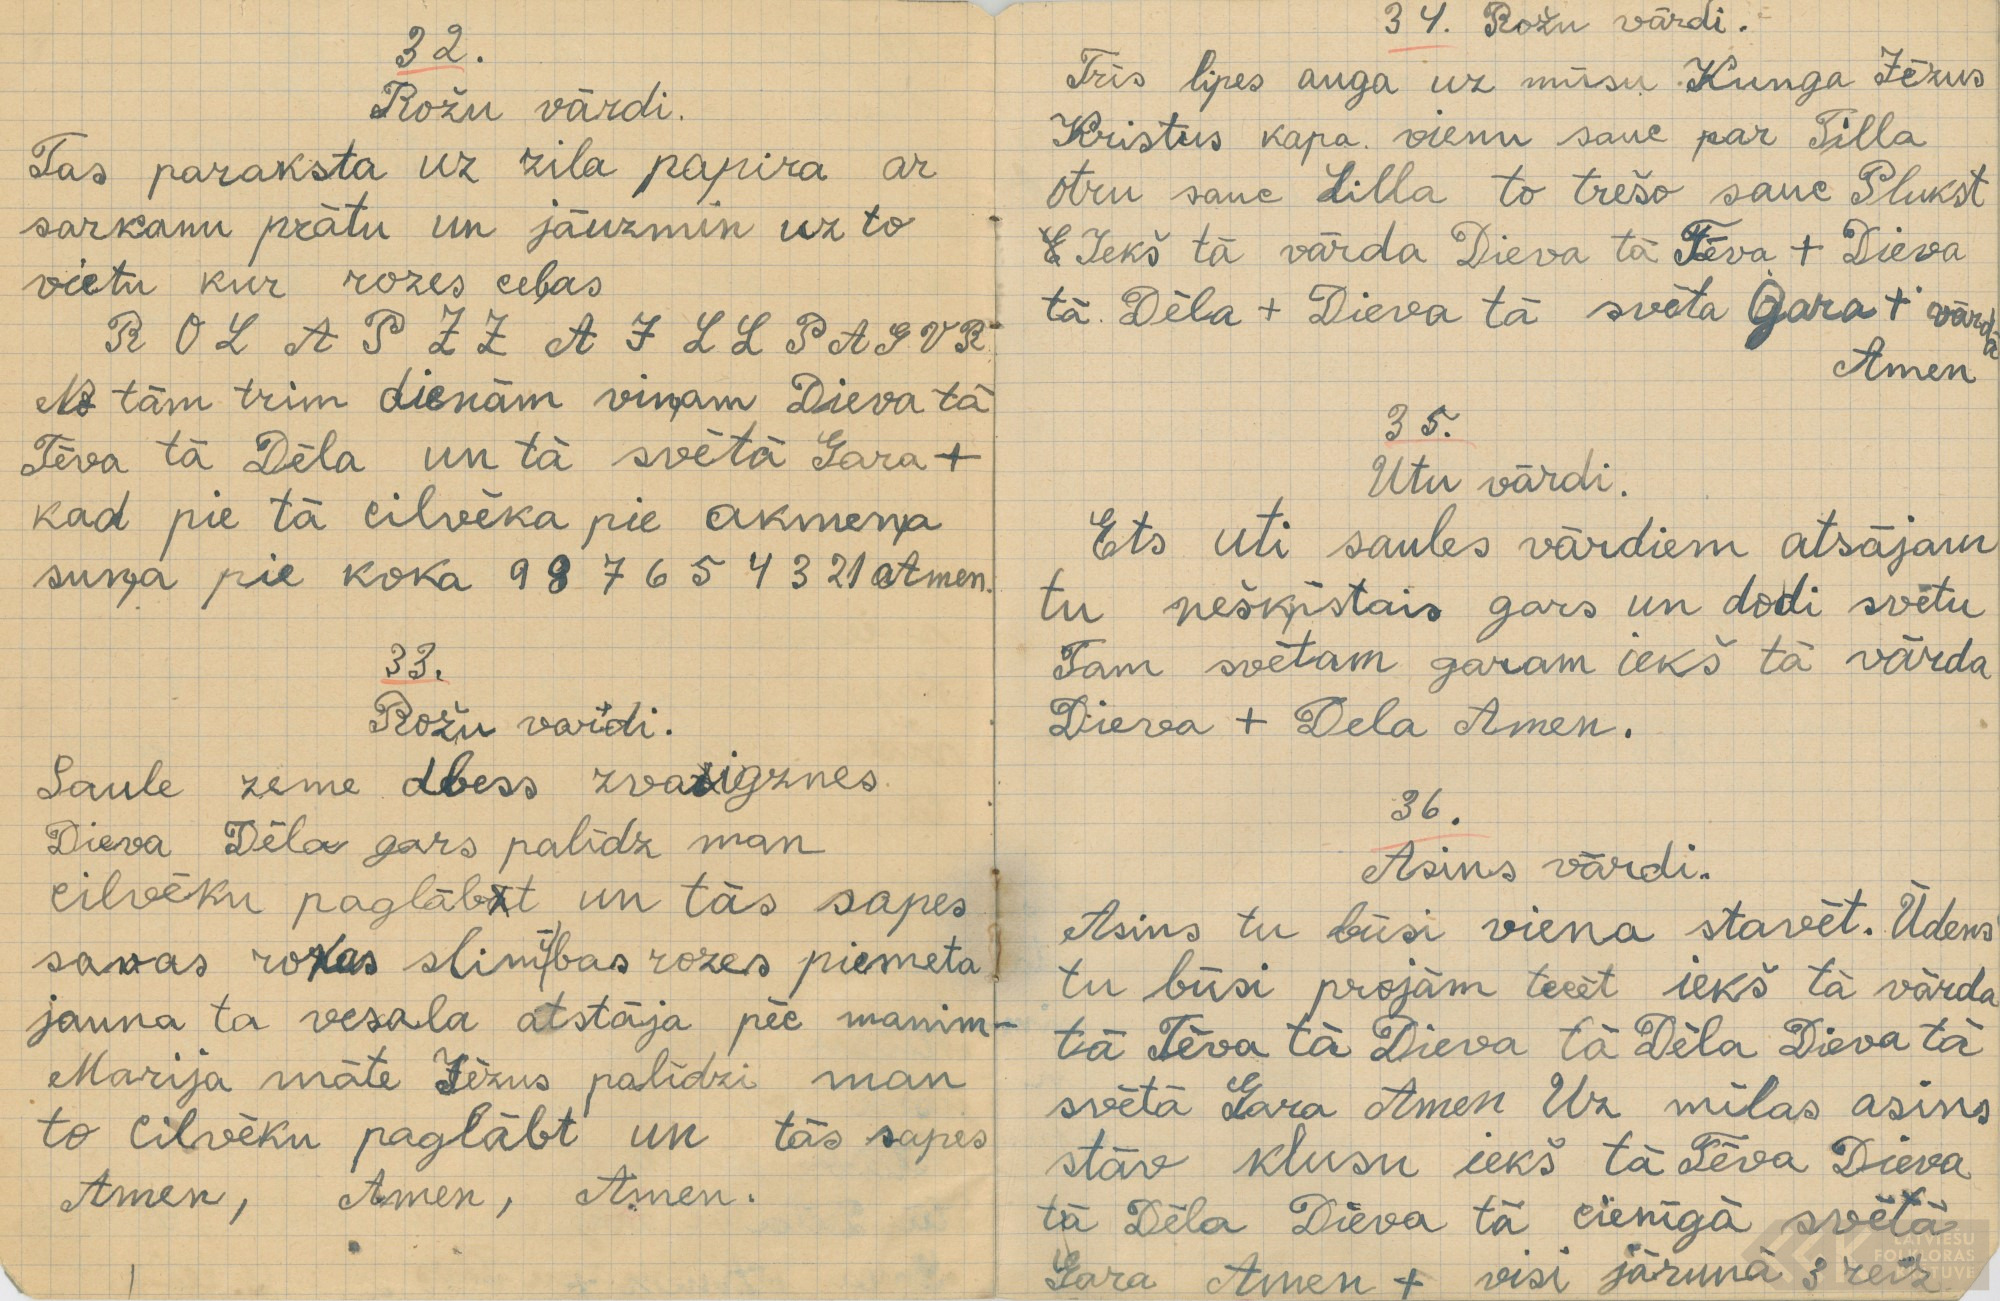 32.
Rožu vārdi.
Tas paraksta uz zila papira ar
sarkanu prātu un jāuzmin uz to
vietu kur rozes celas
R O L A P Z Z A J L L P A G V R
No tām trim dienām viņam Dieva tā
Tēva tā Dēla un tā svētā Gara +
kad pie tā cilvēka pie akmeņa
suņa pie koka 9 8 7 6 5 4 3 2 1 Amen.
33.
Rožu vārdi.
Saule zeme dbess zvaigznes
Dieva Dēla gars palīdz man
cilvēku paglābt un tās sapes
savas rozas slimības rozes piemeta
jauna ta vesala atstāja pēc manim-
Marija māte Jēzus palīdzi man
to Cilvēku paglābt un tās sapes
Amen, Amen, Amen.
34. Rožu vārdi.
Trīs lipes auga uz mūsu Kunga Jēzus
Kristus kapa. vienu sauc par Tilla
otru sauc Lilla to trešo sauc Plukst
Iekš tā vārda Dieva tā Tēva + Dieva
tā Dēla + Dieva tā svēta Gara + vārdā
Amen
35.
Utu vārdi.
Ets uti saules vārdiem atsājam
tu nešķīstais gars un dodi svētu
Tam svētam garam iekš tā vārda
Dieva + Dela Amen.
36.
Asins vārdi.
Asins tu būsi viena stavēt. Ūdens
tu būsi projām tecēt iekš tā vārda
tā Tēva tā Dieva tā Dēla Dieva tā
svētā Gara Amen Uz mīlas asins
stāv klusu iekš tā Tēva Dieva
tā Dēla Dieva tā cienīgā svētā
Gara Amen + visi jāruna 3 reiz
LATVIEŠU
FOLKLORAS
KRĀTUVE